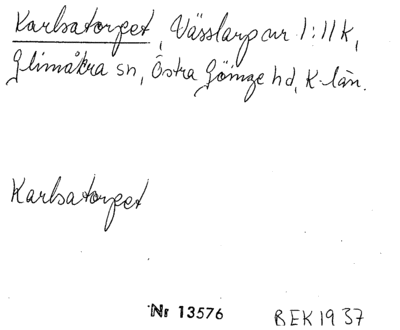 Karlsatorpet, Vässlarp nr 1:11 K,
Glimåkra sn, Östra Göinge hd, K-län.
Karlsatorpet
Nr 13576 BEK 1937